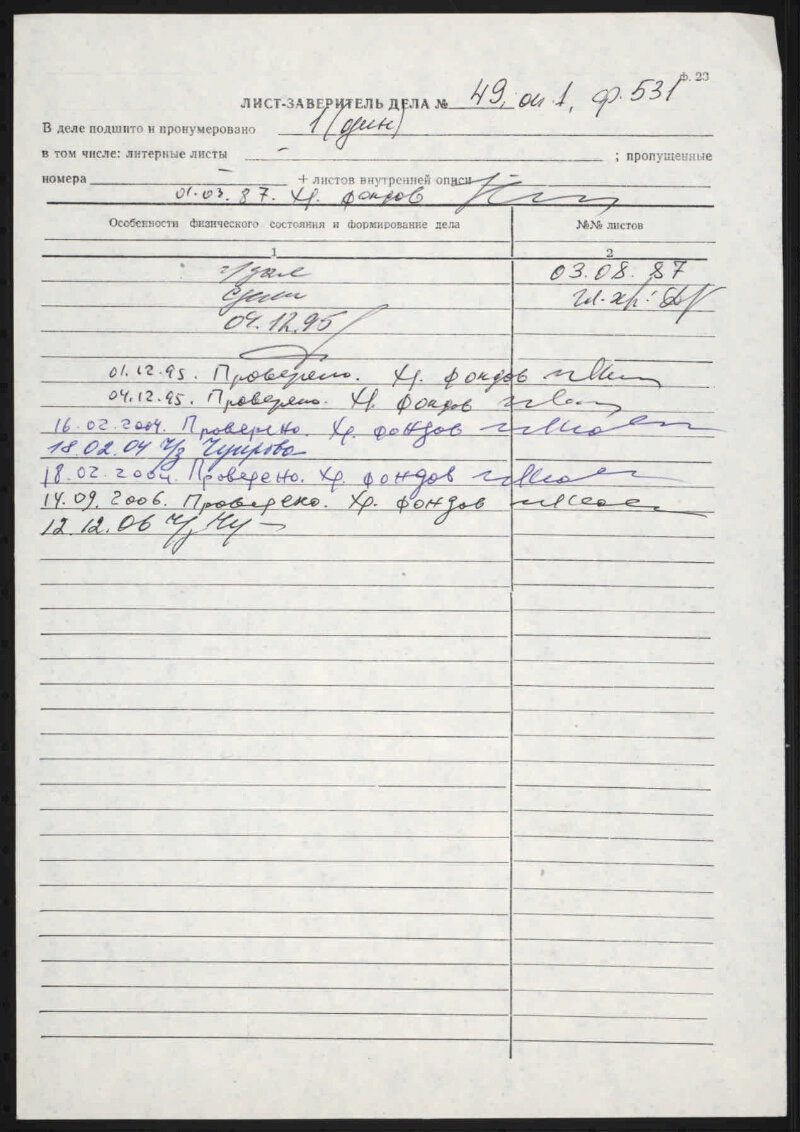 ф. 23
ЛИСТ-ЗАВЕРИТЕЛЬ ДЕЛА № 49, оп. 1, ф. 531
В деле подшито и пронумеровано 1 (один)
в том числе: литерные листы – ; пропущенные
номера – + листов внутренней описи –
01.03.87. Хр. фондов
Особенности физического состояния и формирование дела №№ листов
1 2
03.08.87
гл. хр.:
04.12.95
01.12.95. Проверено. Хр. фондов
04.12.95. Проверено. Хр. фондов
16.02.2004. Проверено. Хр. фондов
18.02.04 Ч/з
18.02.2004. Проверено. Хр. фондов
14.09.2006. Проверено. Хр. фондов
12.12.06 Ч/з